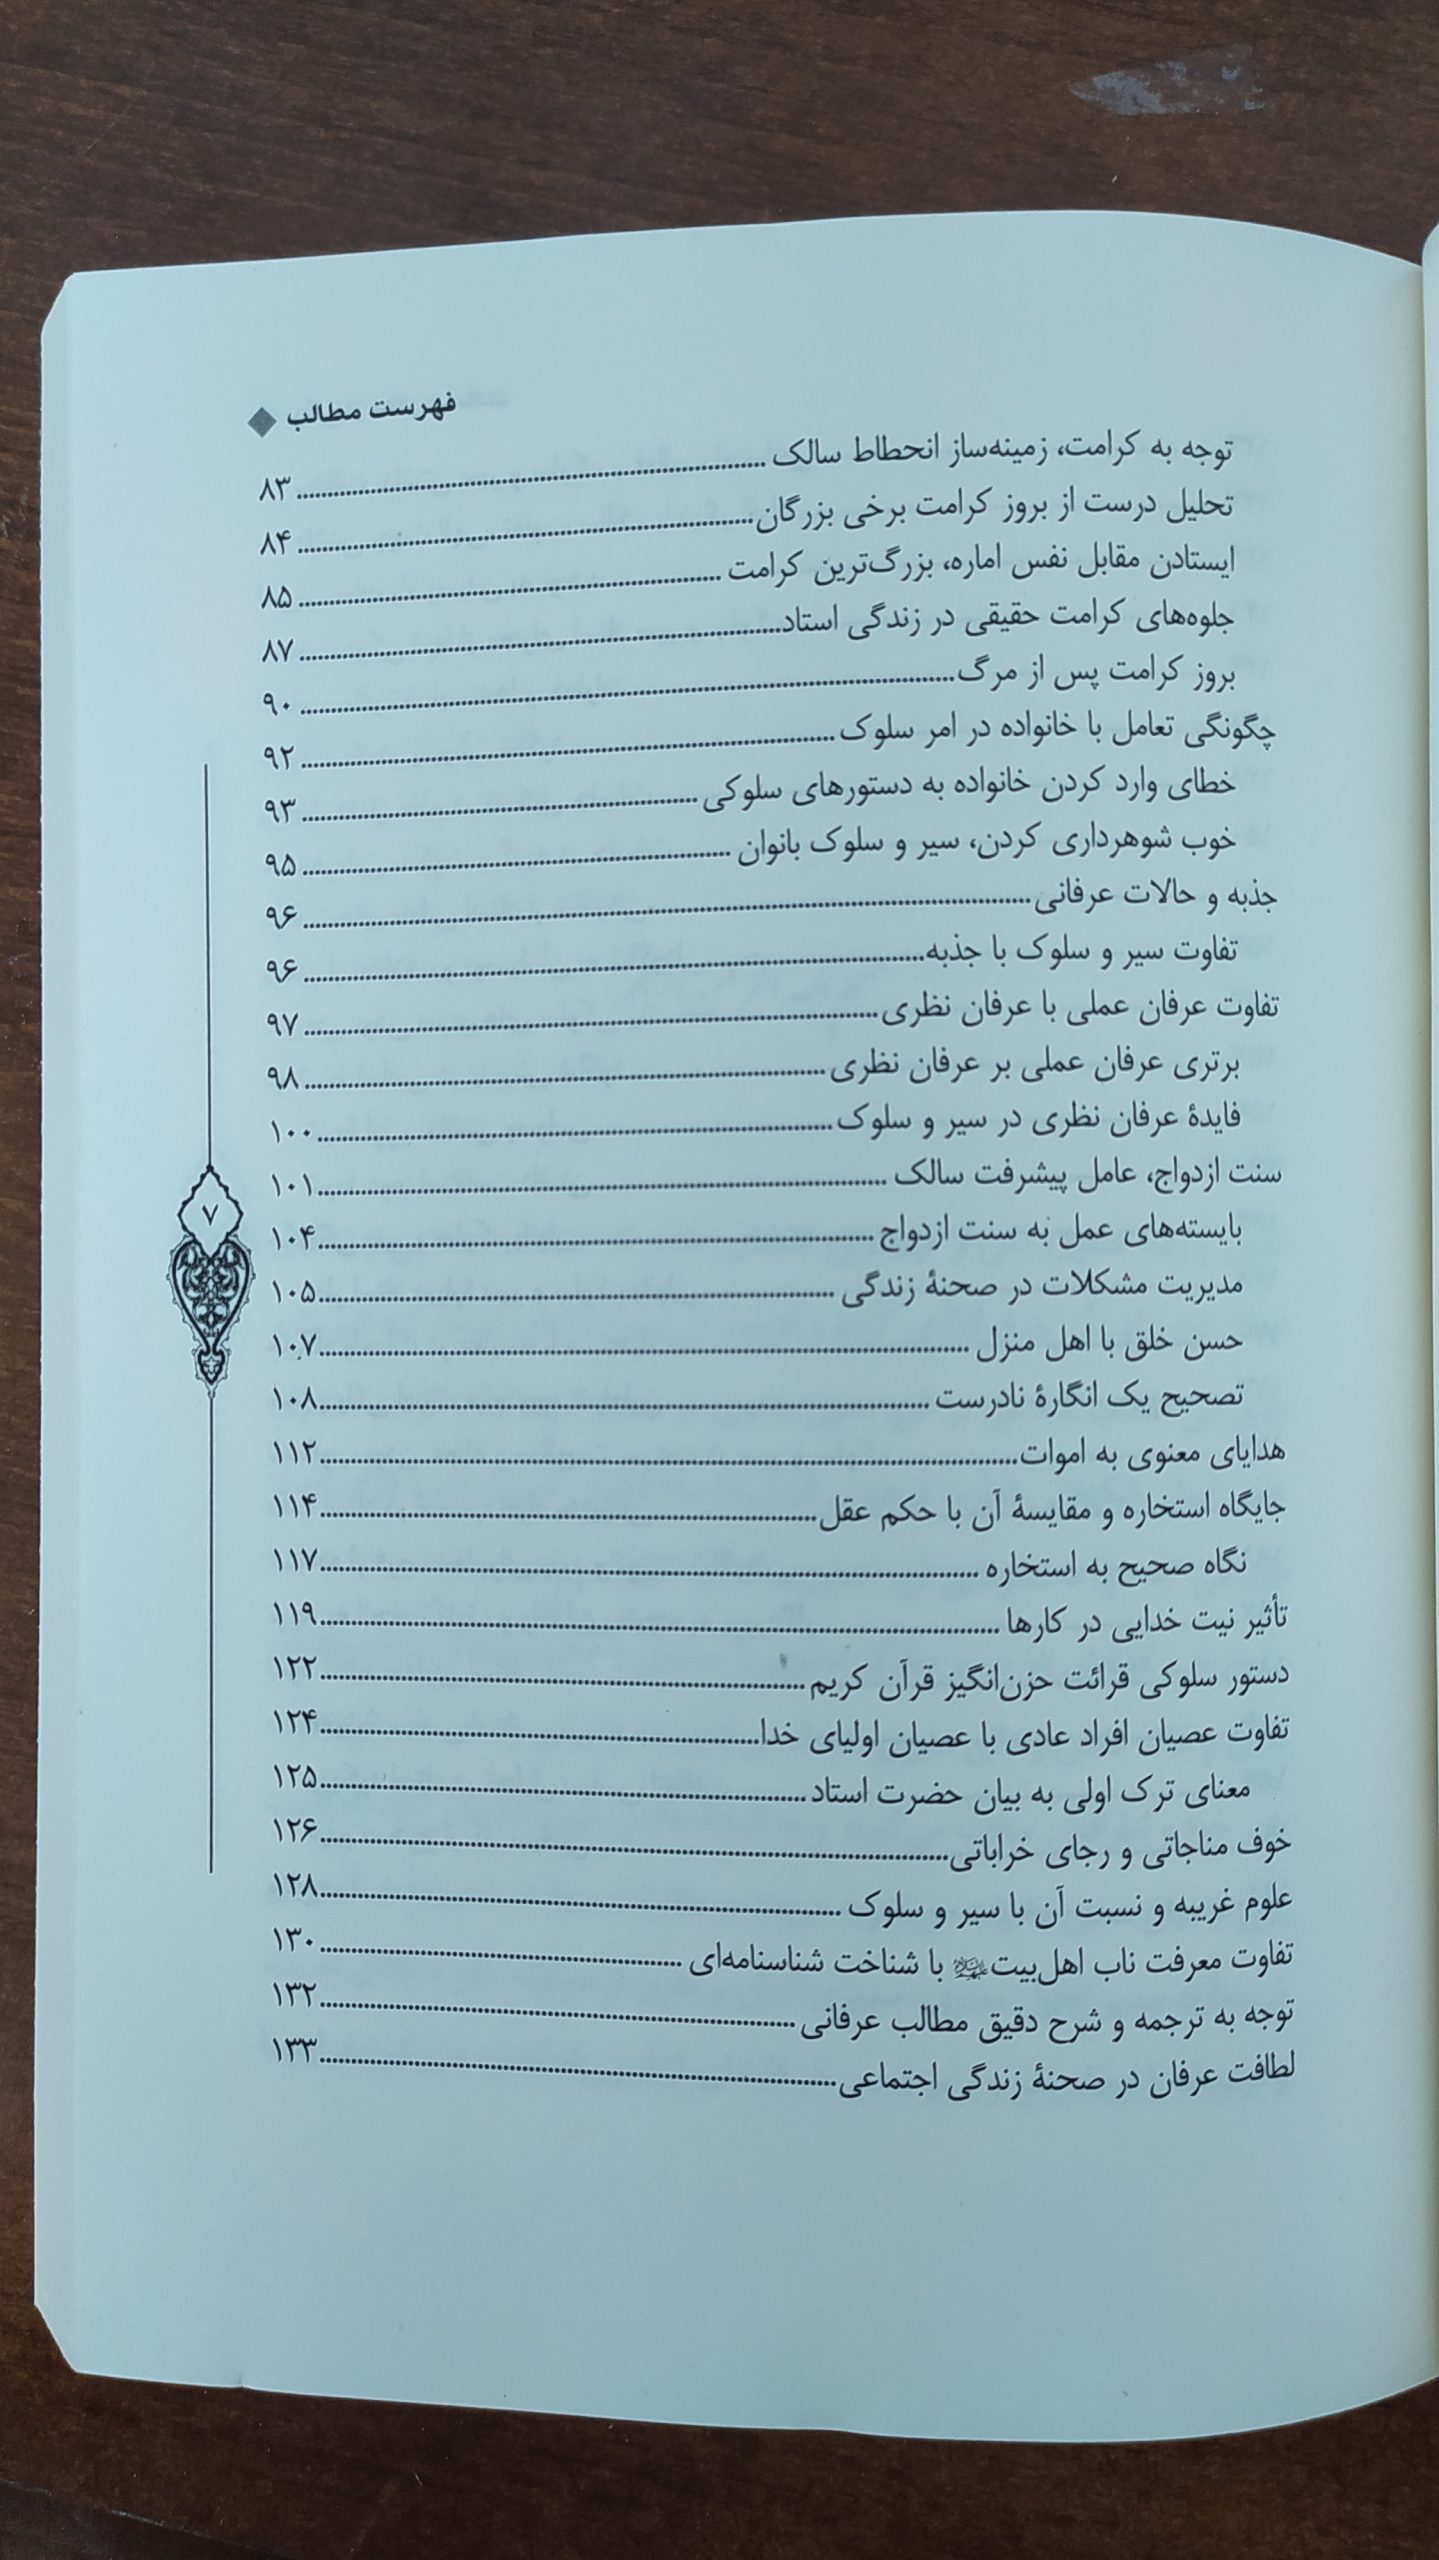 فهرست مطالب
توجه به کرامت، زمینه‌ساز انحطاط سالک ........ ۸۳
تحلیل درست از بروز کرامت برخی بزرگان ........ ۸۴
ایستادن مقابل نفس اماره، بزرگ‌ترین کرامت ........ ۸۵
جلوه‌های کرامت حقیقی در زندگی استاد ........ ۸۷
بروز کرامت پس از مرگ ........ ۹۰
چگونگی تعامل با خانواده در امر سلوک ........ ۹۲
خطای وارد کردن خانواده به دستورهای سلوکی ........ ۹۳
خوب شوهرداری کردن، سیر و سلوک بانوان ........ ۹۵
جذبه و حالات عرفانی ........ ۹۶
تفاوت سیر و سلوک با جذبه ........ ۹۶
تفاوت عرفان عملی با عرفان نظری ........ ۹۷
برتری عرفان عملی بر عرفان نظری ........ ۹۸
فایدهٔ عرفان نظری در سیر و سلوک ........ ۱۰۰
سنت ازدواج، عامل پیشرفت سالک ........ ۱۰۱
بایسته‌های عمل به سنت ازدواج ........ ۱۰۴
مدیریت مشکلات در صحنهٔ زندگی ........ ۱۰۵
حسن خلق با اهل منزل ........ ۱۰۷
تصحیح یک انگارهٔ نادرست ........ ۱۰۸
هدایای معنوی به اموات ........ ۱۱۲
جایگاه استخاره و مقایسهٔ آن با حکم عقل ........ ۱۱۴
نگاه صحیح به استخاره ........ ۱۱۷
تأثیر نیت خدایی در کارها ........ ۱۱۹
دستور سلوکی قرائت حزن‌انگیز قرآن کریم ........ ۱۲۲
تفاوت عصیان افراد عادی با عصیان اولیای خدا ........ ۱۲۴
معنای ترک اولی به بیان حضرت استاد ........ ۱۲۵
خوف مناجاتی و رجای خراباتی ........ ۱۲۶
علوم غریبه و نسبت آن با سیر و سلوک ........ ۱۲۸
تفاوت معرفت ناب اهل‌بیت با شناخت شناسنامه‌ای ........ ۱۳۰
توجه به ترجمه و شرح دقیق مطالب عرفانی ........ ۱۳۲
لطافت عرفان در صحنهٔ زندگی اجتماعی ........ ۱۳۳
۷